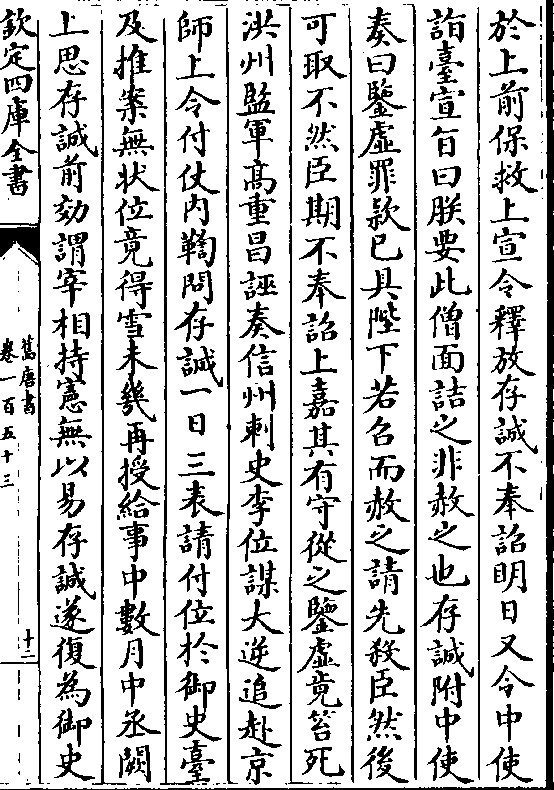 於上前保救上宣令釋放存誠不奉詔明日又令中使
詣臺宣旨曰朕要此僧面詰之非赦之也存誠附中使
奏曰鑒虛罪款已具陛下若召而赦之請先殺臣然後
可取不然臣期不奉詔上嘉其有守從之鑒虛竟笞死
洪州監軍髙重昌誣奏信州刺史李位謀大逆追赴京
師上令付仗内鞫問存誠一日三表請付位於御史臺
及推案無狀位竟得雪未幾再授給事中數月中丞闕
上思存誠前効謂宰相持憲無以易存誠遂復為御史
欽定四庫全書
舊唐書
卷一百五十三
十二